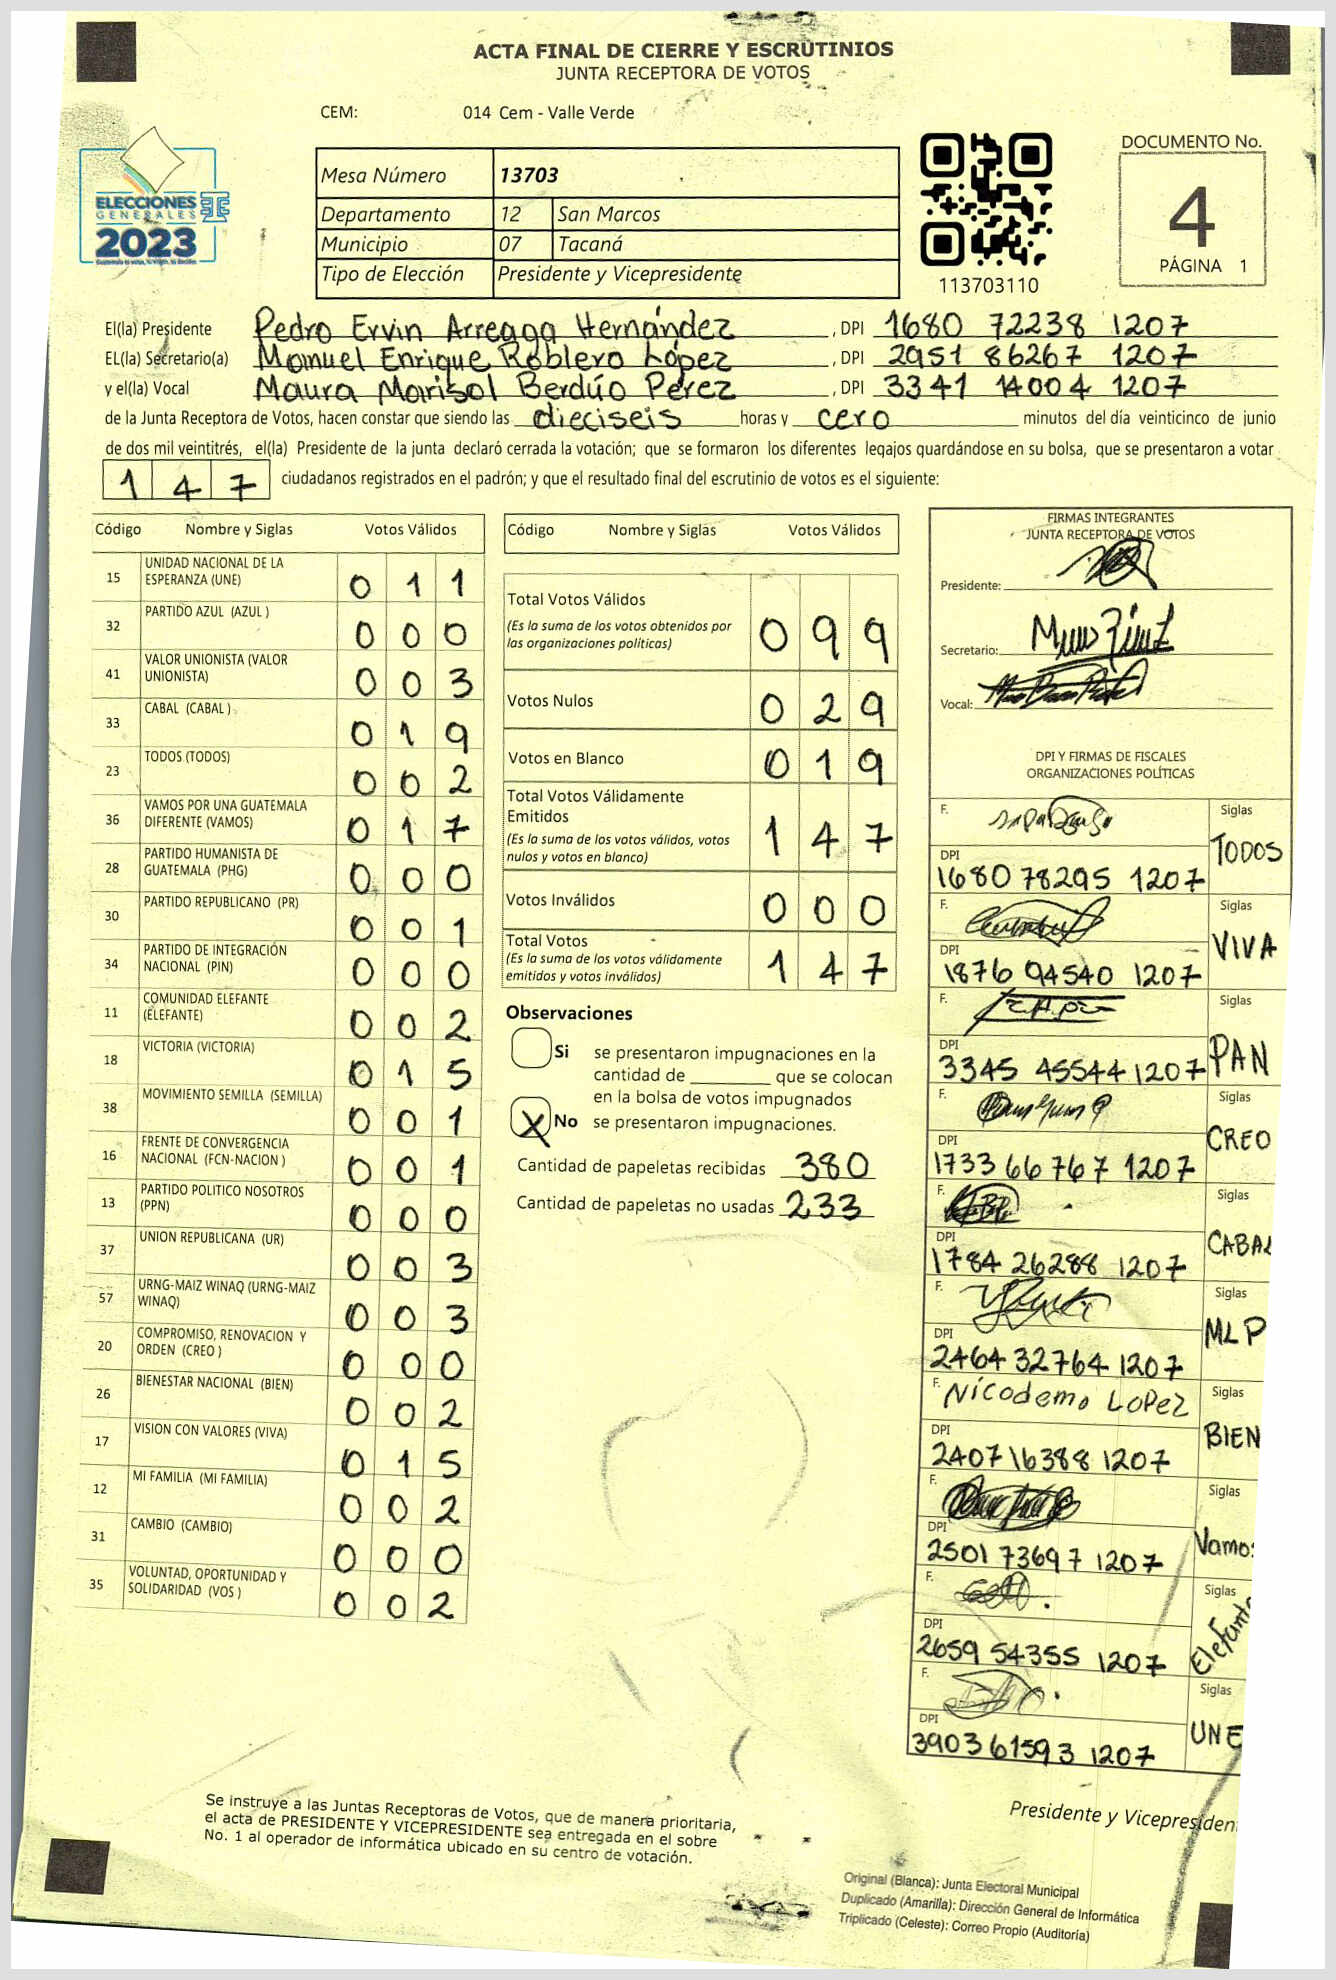 ACTA FINAL DE CIERRE Y ESCRUTINIOS
JUNTA RECEPTORA DE VOTOS
CEM: 014 Cem - Valle Verde
ELECCIONES
GENERALES
2023
Mesa Número 13703
Departamento 12 San Marcos
Municipio 07 Tacaná
Tipo de Elección Presidente y Vicepresidente
113703110
DOCUMENTO No.
4
PÁGINA 1
El(la) Presidente Pedro Ervin Arreaga Hernández , DPI 1680 72238 1207
EL(la) Secretario(a) Manuel Enrique Roblero López , DPI 2951 86267 1207
y el(la) Vocal Maura Marisol Berdúo Perez , DPI 3341 14004 1207
de la Junta Receptora de Votos, hacen constar que siendo las dieciseis horas y cero minutos del día veinticinco de junio
de dos mil veintitrés, el(la) Presidente de la junta declaró cerrada la votación; que se formaron los diferentes legajos guardándose en su bolsa, que se presentaron a votar
1 4 7 ciudadanos registrados en el padrón; y que el resultado final del escrutinio de votos es el siguiente:
Código Nombre y Siglas Votos Válidos
15 UNIDAD NACIONAL DE LA ESPERANZA (UNE) 0 1 1
32 PARTIDO AZUL (AZUL ) 0 0 0
41 VALOR UNIONISTA (VALOR UNIONISTA) 0 0 3
33 CABAL (CABAL ) 0 1 9
23 TODOS (TODOS) 0 0 2
36 VAMOS POR UNA GUATEMALA DIFERENTE (VAMOS) 0 1 7
28 PARTIDO HUMANISTA DE GUATEMALA (PHG) 0 0 0
30 PARTIDO REPUBLICANO (PR) 0 0 1
34 PARTIDO DE INTEGRACIÓN NACIONAL (PIN) 0 0 0
11 COMUNIDAD ELEFANTE (ELEFANTE) 0 0 2
18 VICTORIA (VICTORIA) 0 1 5
38 MOVIMIENTO SEMILLA (SEMILLA) 0 0 1
16 FRENTE DE CONVERGENCIA NACIONAL (FCN-NACION ) 0 0 1
13 PARTIDO POLITICO NOSOTROS (PPN) 0 0 0
37 UNION REPUBLICANA (UR) 0 0 3
57 URNG-MAIZ WINAQ (URNG-MAIZ WINAQ) 0 0 3
20 COMPROMISO, RENOVACION Y ORDEN (CREO ) 0 0 0
26 BIENESTAR NACIONAL (BIEN) 0 0 2
17 VISION CON VALORES (VIVA) 0 1 5
12 MI FAMILIA (MI FAMILIA) 0 0 2
31 CAMBIO (CAMBIO) 0 0 0
35 VOLUNTAD, OPORTUNIDAD Y SOLIDARIDAD (VOS ) 0 0 2
Código Nombre y Siglas Votos Válidos
Total Votos Válidos 0 9 9
(Es la suma de los votos obtenidos por
las organizaciones políticas)
Votos Nulos 0 2 9
Votos en Blanco 0 1 9
Total Votos Válidamente
Emitidos 1 4 7
(Es la suma de los votos válidos, votos
nulos y votos en blanco)
Votos Inválidos 0 0 0
Total Votos 1 4 7
(Es la suma de los votos válidamente
emitidos y votos inválidos)
Observaciones
Si se presentaron impugnaciones en la
cantidad de ________ que se colocan
en la bolsa de votos impugnados
X No se presentaron impugnaciones.
Cantidad de papeletas recibidas 380
Cantidad de papeletas no usadas 233
FIRMAS INTEGRANTES
JUNTA RECEPTORA DE VOTOS
Presidente:
Secretario:
Vocal:
DPI Y FIRMAS DE FISCALES
ORGANIZACIONES POLÍTICAS
F. Siglas
DPI TODOS
1680 78295 1207
F. Siglas
DPI VIVA
1876 94540 1207
F. Siglas
DPI PAN
3345 45544 1207
F. Siglas
DPI CREO
1733 66767 1207
F. Siglas
DPI CABAL
1784 26288 1207
F. Siglas
DPI MLP
2464 32764 1207
F. Nicodemo LoPez Siglas
DPI BIEN
2407 16388 1207
F. Siglas
DPI Vamos
2501 73697 1207
F. Siglas
DPI Elefante
2659 54355 1207
F. Siglas
DPI UNE
3903 61593 1207
Se instruye a las Juntas Receptoras de Votos, que de manera prioritaria,
el acta de PRESIDENTE Y VICEPRESIDENTE sea entregada en el sobre
No. 1 al operador de informática ubicado en su centro de votación.
Presidente y Vicepresiden
Original (Blanca): Junta Electoral Municipal
Duplicado (Amarilla): Dirección General de Informática
Triplicado (Celeste): Correo Propio (Auditoría)